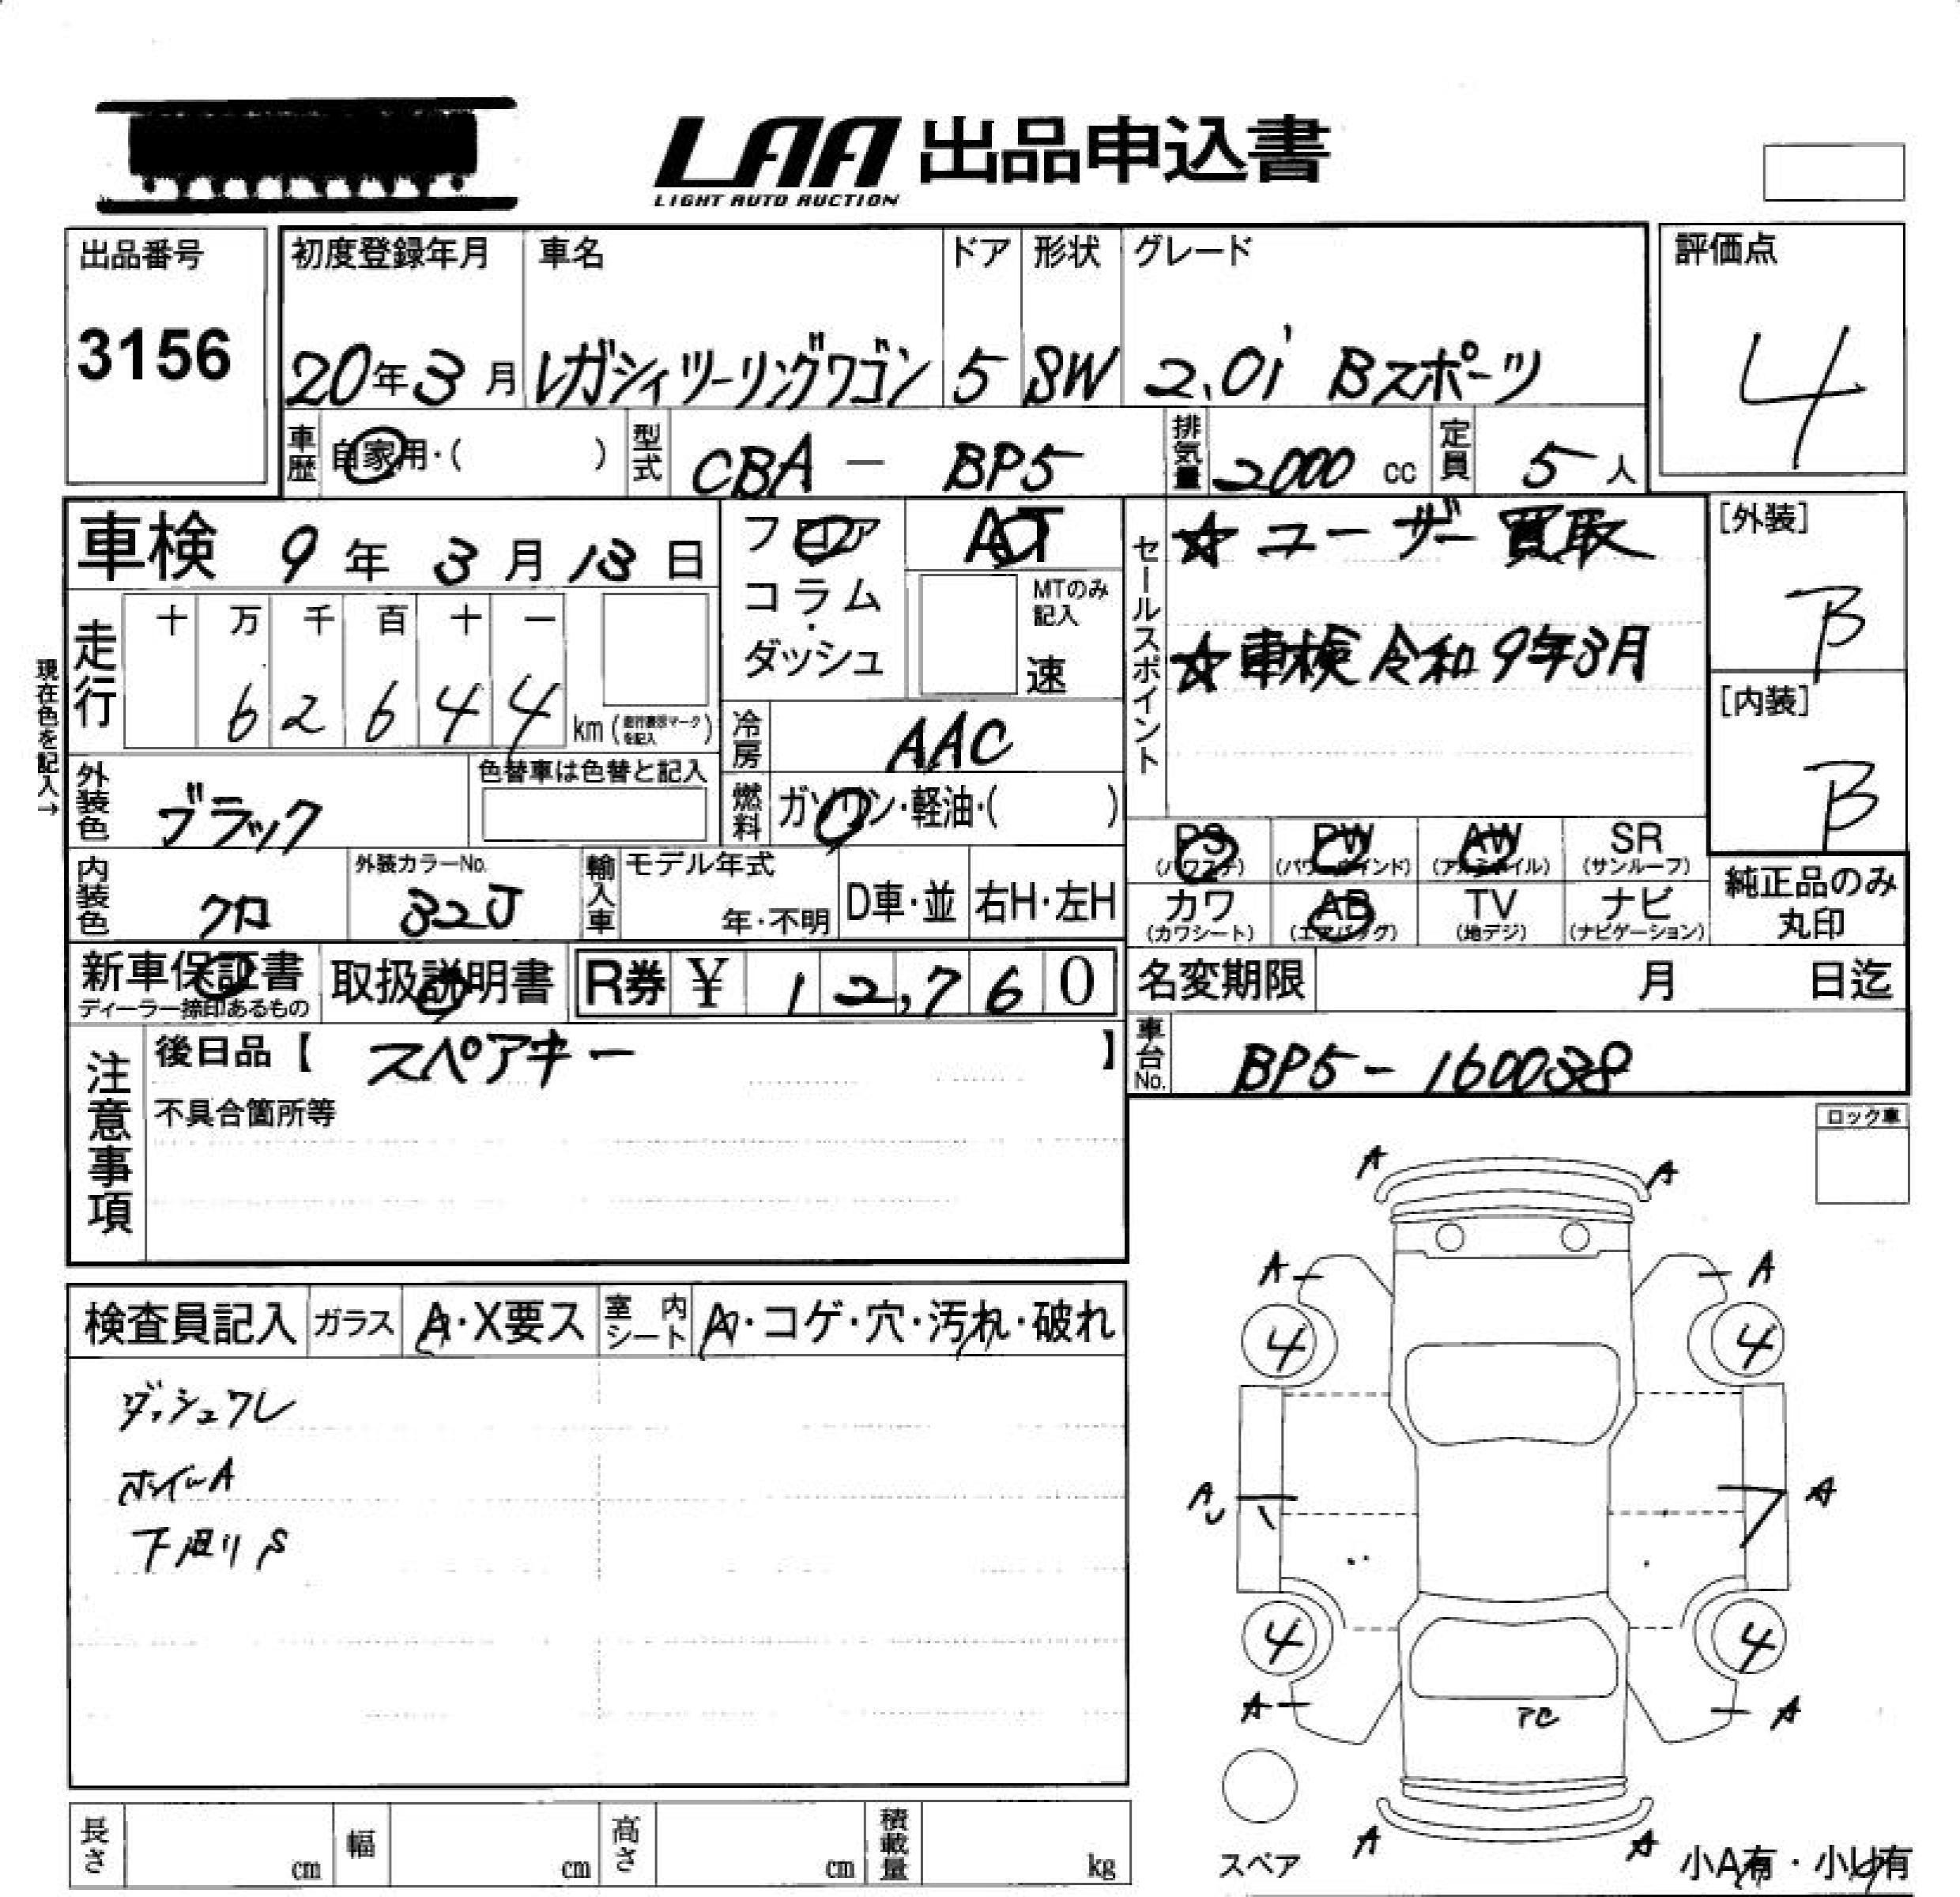 LAA 出品申込書
LIGHT AUTO AUCTION
出品番号
3156
初度登録年月 車名 ドア 形状 グレード
20年3月 レガシィツーリングワゴン 5 SW 2.0i Bスポーツ
評価点
4
車歴 自家用・( ) 型式 CBA - BP5 排気量 2000 cc 定員 5人
車検 9年3月13日
フロア
コラム
・
ダッシュ
AT
MTのみ
記入
速
セールスポイント
☆ユーザー買取
☆車検令和9年3月
[外装]
B
[内装]
B
現在色を記入→
走行 十 万 千 百 十 一
6 2 6 4 4 km (走行表示マークを記入)
冷房 AAC
外装色 ブラック
色替車は色替と記入
燃料 ガソリン・軽油・( )
PS (パワステ) PW (パワーウインド) AW (アルミホイル) SR (サンルーフ)
カワ (カワシート) AB (エアバッグ) TV (地デジ) ナビ (ナビゲーション)
純正品のみ
丸印
内装色 クロ
外装カラーNo.
32J
輸入車 モデル年式
年・不明 D車・並 右H・左H
新車保証書
ディーラー捺印あるもの
取扱説明書
R券 ¥ 12,760
名変期限 月 日迄
車台No. BP5-160038
注意事項
後日品【 スペアキー 】
不具合箇所等
ロック車
検査員記入 ガラス A・X要ス 室内シート A・コゲ・穴・汚れ・破れ
ダッシュワレ
ホイールA
下廻りS
A A
A A
4 4
A A
U
4 4
A A
PC
スペア
A A
小A有・小U有
長さ cm 幅 cm 高さ cm 積載量 kg